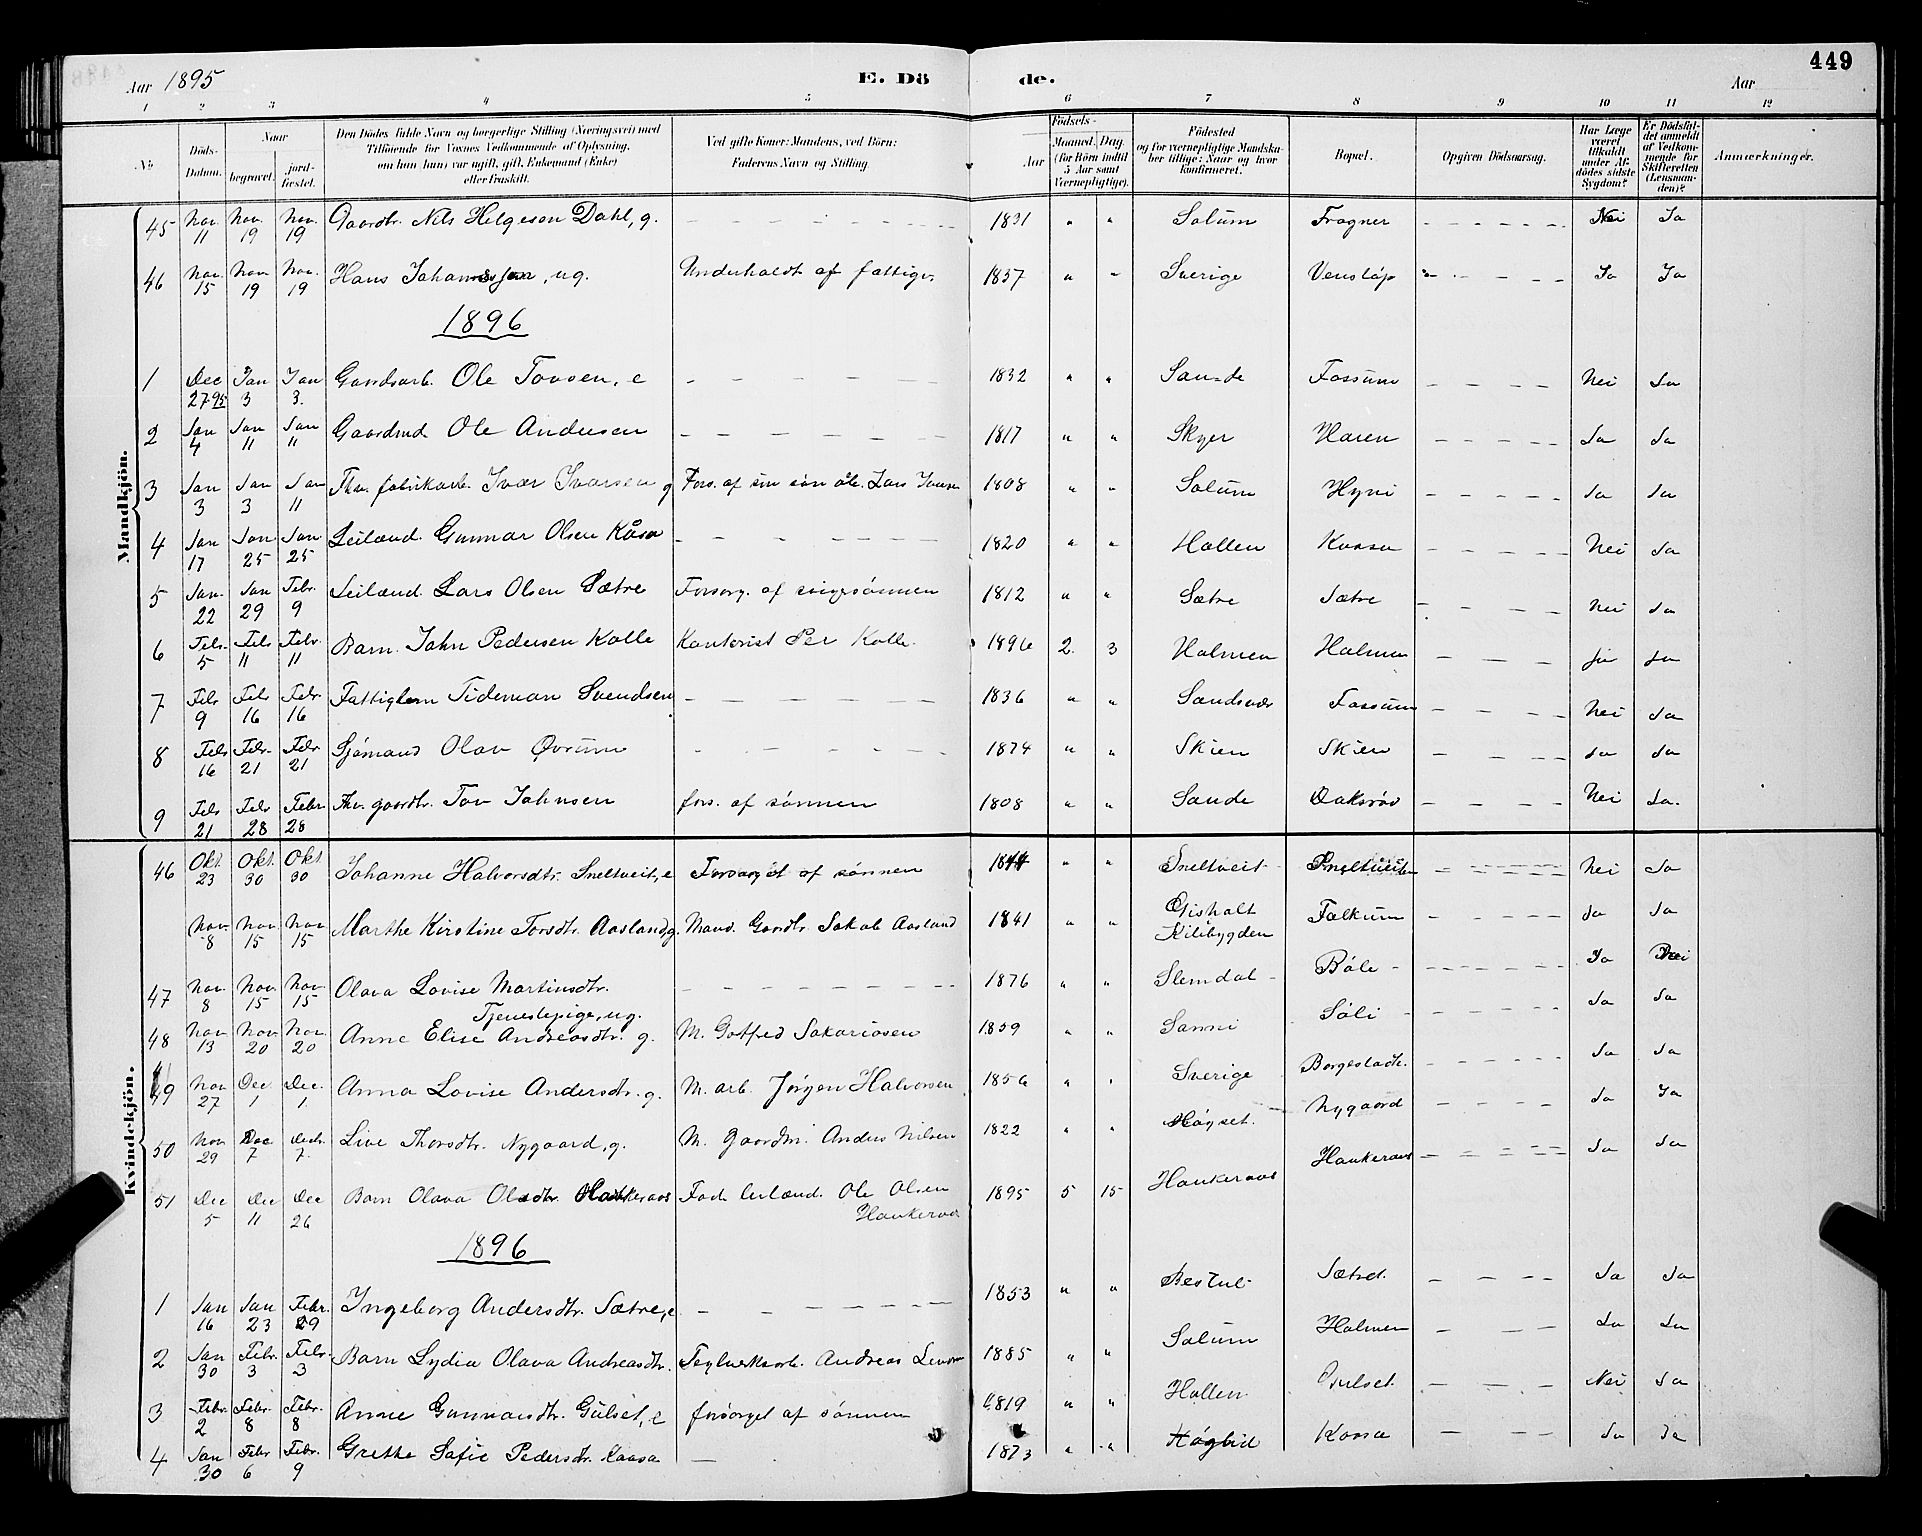 449
Aar 1895 E. Dö de. Aar
1 2 3 4 5 6 7 8 9 10 11 12
No. Döds-Datum. Naar begravet. jord-fæstet. Den Dödes fulde Navn og borgerlige Stilling (Næringsvei) med Tilföiende for Voxnes Vedkommende af Oplysning, om han (hun) var ugift, gift, Enkemand (Enke) eller fraskilt. Ved gifte Koner: Mandens, ved Börn: Faderens Navn og Stilling. Födsels- Aar Maaned. Dag. (for Börn indtil 5 Aar samt Værnepligtige). Födested og for værnepligtige Mandskaber tillige: Naar og hvor konfirmeret. Bopæl. Opgiven Dödsaarsag. Har Læge været tilkaldt under Afdödes sidste Sygdom? Er Dödsfaldet anmeldt af Vedkommende for Skifteretten (Lensmanden)? Anmærkninger.
Mandkjön.
45 Nov. 11 Nov. 19 Nov. 19 Gaardbr. Nils Helgesen Dahl, g. 1831 " " Solum Frogner Nei Ja
46 Nov. 15 Nov 19 Nov. 19 Hans Johannesen, ug. Underholdt af fattigv. 1837 " " Sverige Venstöp Ja Ja
1896
1 Dec 27.95 Jan 3 Jan 3. Gaardsarb. Ole Tovsen, e 1832 " " Sande Fossum Nei Ja
2 Jan 4 Jan 11 Jan 11 Gaardmd Ole Andersen 1817 " " Skyer Haren Ja Ja
3 Jan 3 Jan 3 Jan 11 Fhv. fabrikarb. Ivar Ivarsen g Fors. af sin søn Lars Ivarsen 1808 " " Solum Hyni Ja Ja
4 Jan 17 Jan. 25 Jan. 25 Leilænd. Gunnar Olsen Kåsa 1820 " " Hollen Kaasa Nei Ja
5 Jan. 22 Jan 29 Febr. 9 Leilænd. Lars Olsen Sætre Forsørg. af svigersønnen 1812 " " Sætre Sætre Nei Ja
6 Febr. 5 Feb 11 Febr. 11 Barn. John Pedersen Kolle Kontorist Per Kolle. 1896 2. 3 Holmen Holmen Ja Ja
7 Feb 9 Feb 16 Febr 16 Fattiglem Tideman Svendsen 1836 " " Sandsvær Fossum Nei Ja
8 Feb 16 Febr. 21 Febr 21 Sjømand Olav Øvrum 1874 " " Skien Skien Ja Ja
9 Feb 21 Febr 28 Febr 28 Fhv. gaardbr. Tov Johnsen fors. af sønnen 1808 " " Sande Nei Ja.
Kvindekjön.
46 Okt. 23 Okt. 30 Okt 30 Johanne Halvorsdtr. Sneltveit, e Forsørget af sønnen 1844 " " Sneltveit Sneltveiten Nei Ja
Nov. 8 Nov. 15 Nov 15 Marthe Kirstine Torsdtr. Aasland, g. Mand. Gardbr. Jakob Aasland 1841 " " Gisholt Kilibygden Falkum Ja Ja
47 Nov. 8 Nov. 15 Nov. 15 Olava Lovise Martinsdtr. 1876 " " Slemdal Bøle Ja Nei
Tjenestepige, ug.
48 Nov. 13 Nov. 20 Nov. 20 Anne Elise Andreasdtr. g. M. Gotfred Sakariasen 1859 " " Sanni Søli Ja Ja
49 Nov 27 Dec. 1 Dec. 1. Anna Lovise Andersdtr. g. M. arb. Jörgen Halvorsen 1856 " " Sverige Borgestadh. Ja Ja
50 Nov 29 Dec 7 Decb. 7. Live Thorsdtr. Nygaard, g. M. Gaardm. Anders Nilsen 1822 " " Høgset. Nygaard Ja Ja
51 Dec 5 Dec 11 Dec 26 Barn Olava Olsdtr. Haukeraas Fad. leilænd. Ole Olsen 1895 5 15 Haukeraas Haukeraas Ja Ja
Haukeraas
1896
1 Jan 16 Jan 23 Febr. 29 Ingeborg Andersdtr. Sætre, e 1853 " " Bestul Sætret Ja Ja
2 Jan 30 Febr. 3 Febr. 3 Barn Lydia Olava Andreasdtr. Teglverksarb. Andreas 1885 " " Solum Holmen Ja Ja
3 Febr. 2 Febr. 8 Febr. 8 Anne Gunnarsdtr. Gulset, e forsørget af sønnen 1819 " " Hollen Gulset Nei Ja
4 Jan 30 Febr 6 Febr. 9 Grethe Sofie Pedersdtr. Kaasa 1873 " " Høgbid Kaasa Ja Ja